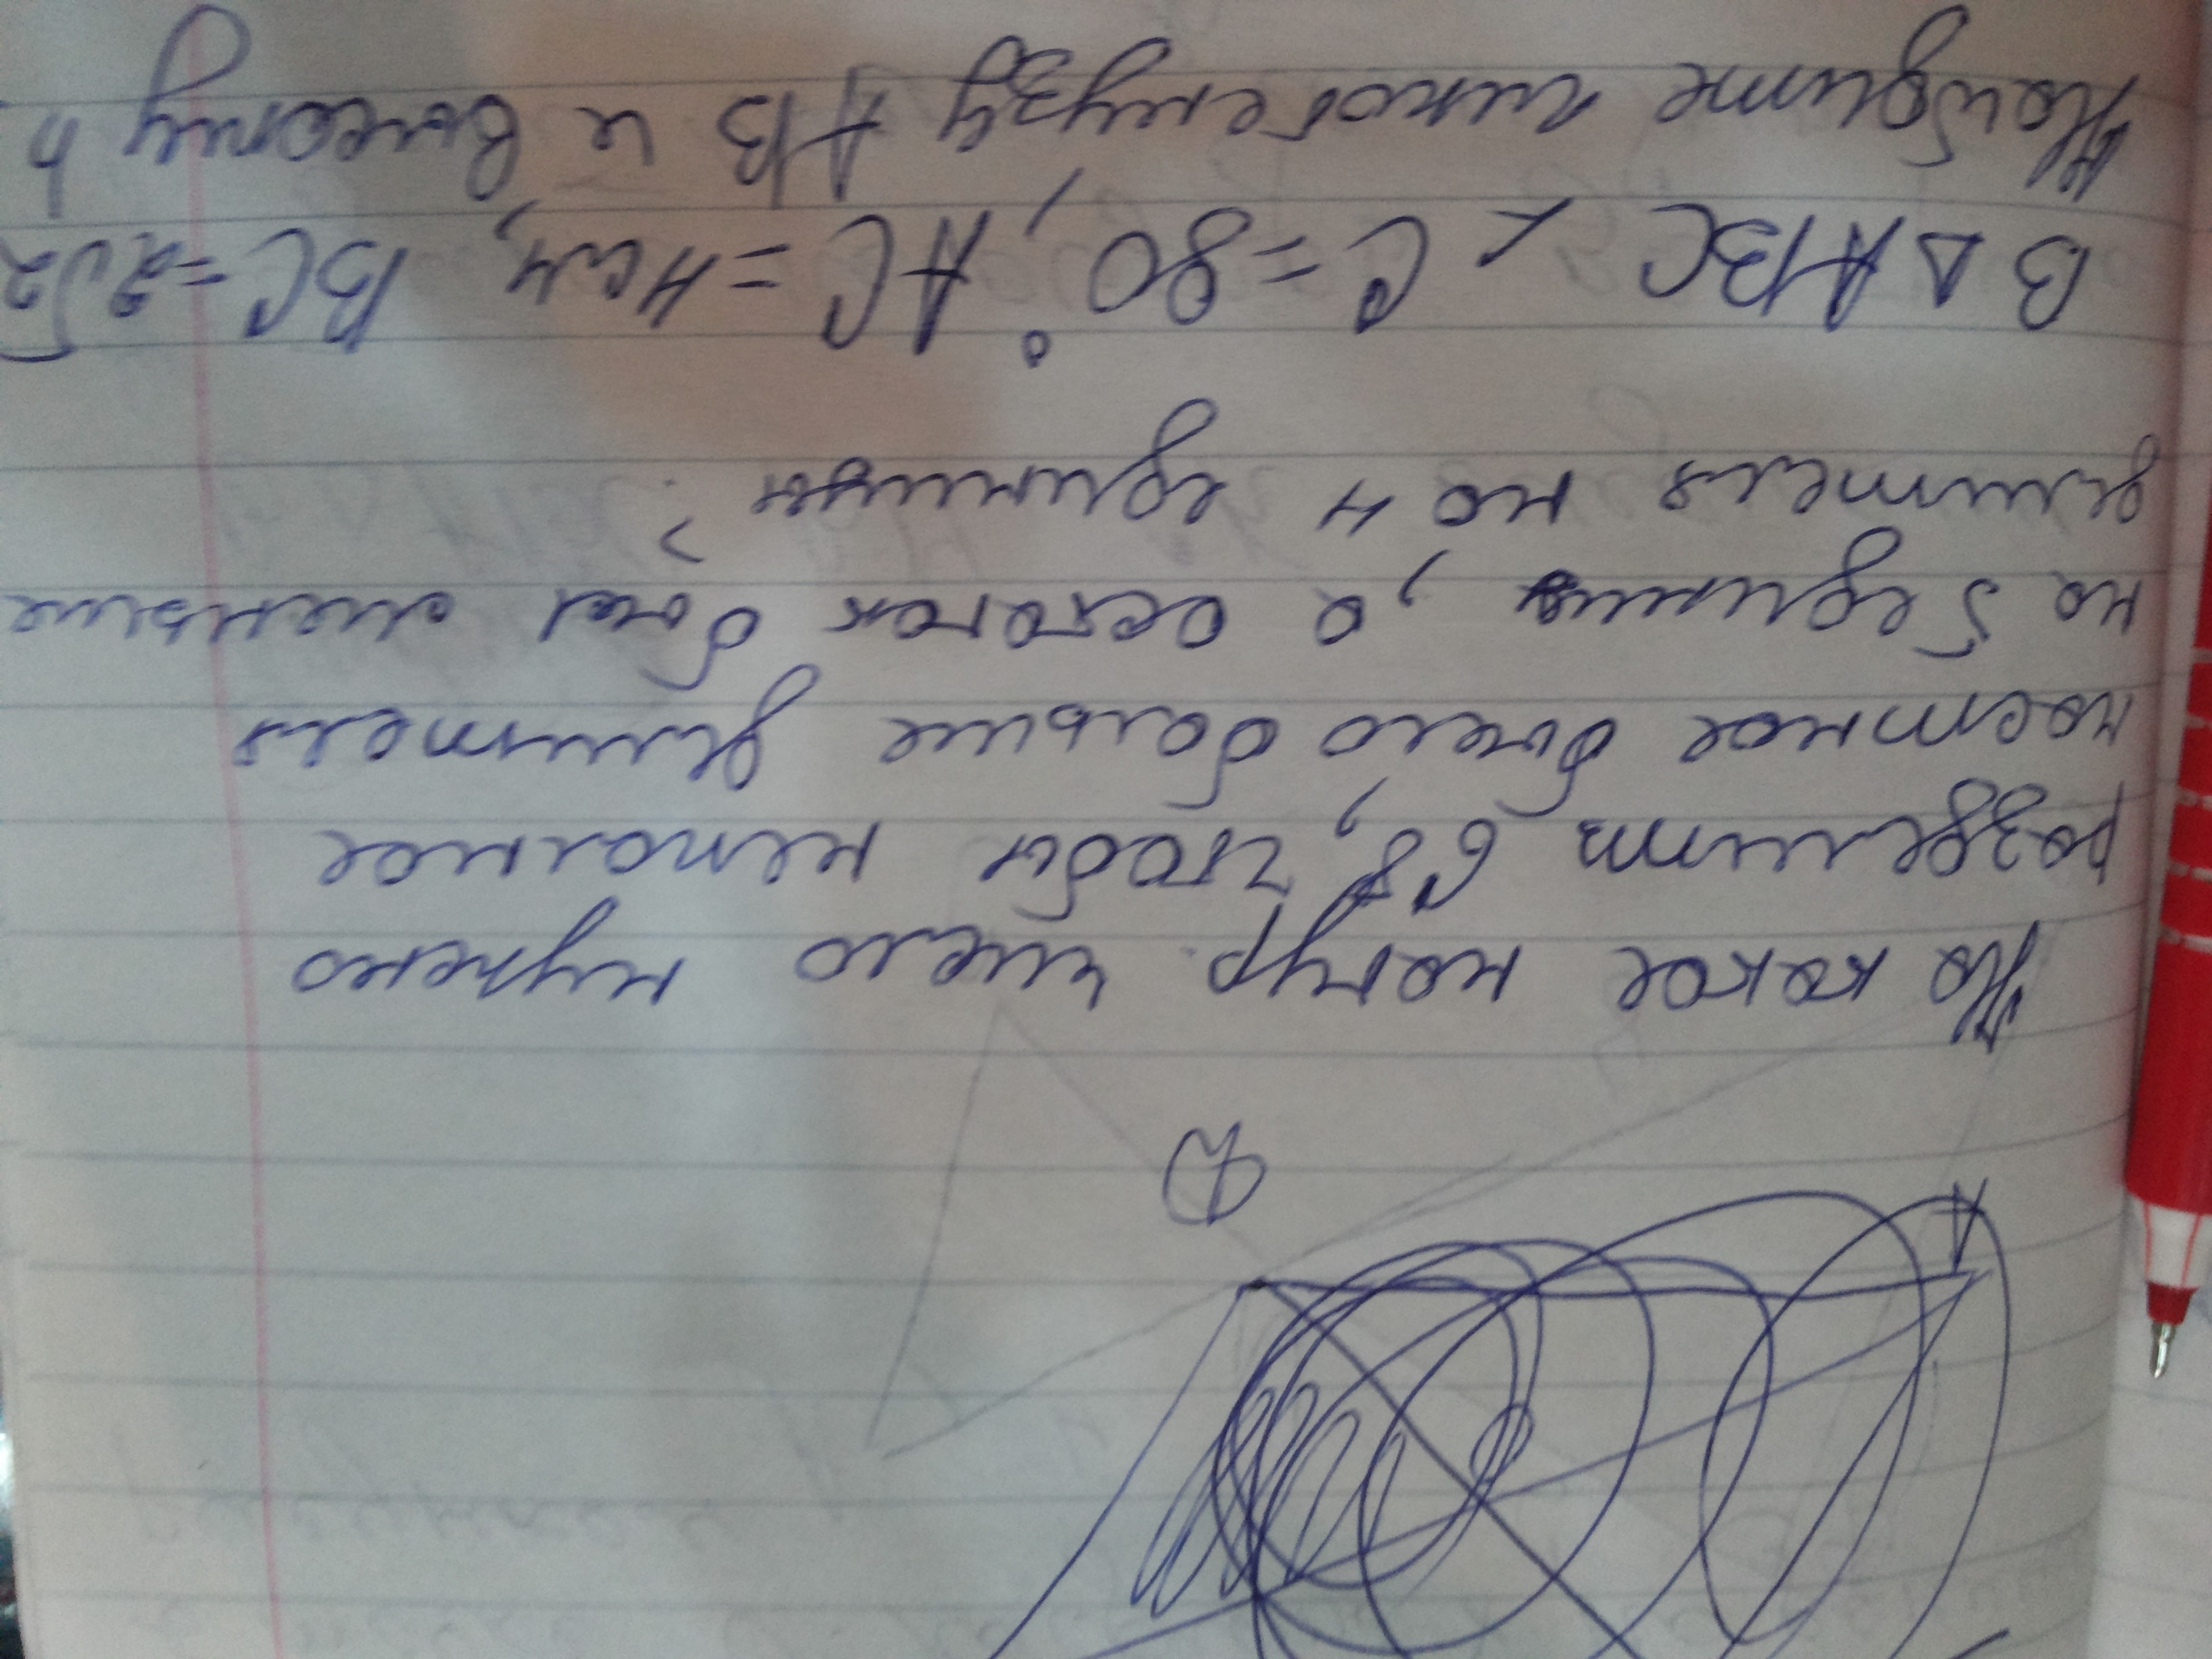 На какое натур. число нужно
разделить 68, чтобы неполное
частное было больше делителя
на 5 единиц, а остаток был меньше
делителя на 4 единицы?
В △ ABC ∠ C = 90°, AC = 4см, BC = 2√2
Найдите гипотенузу AB и высоту h